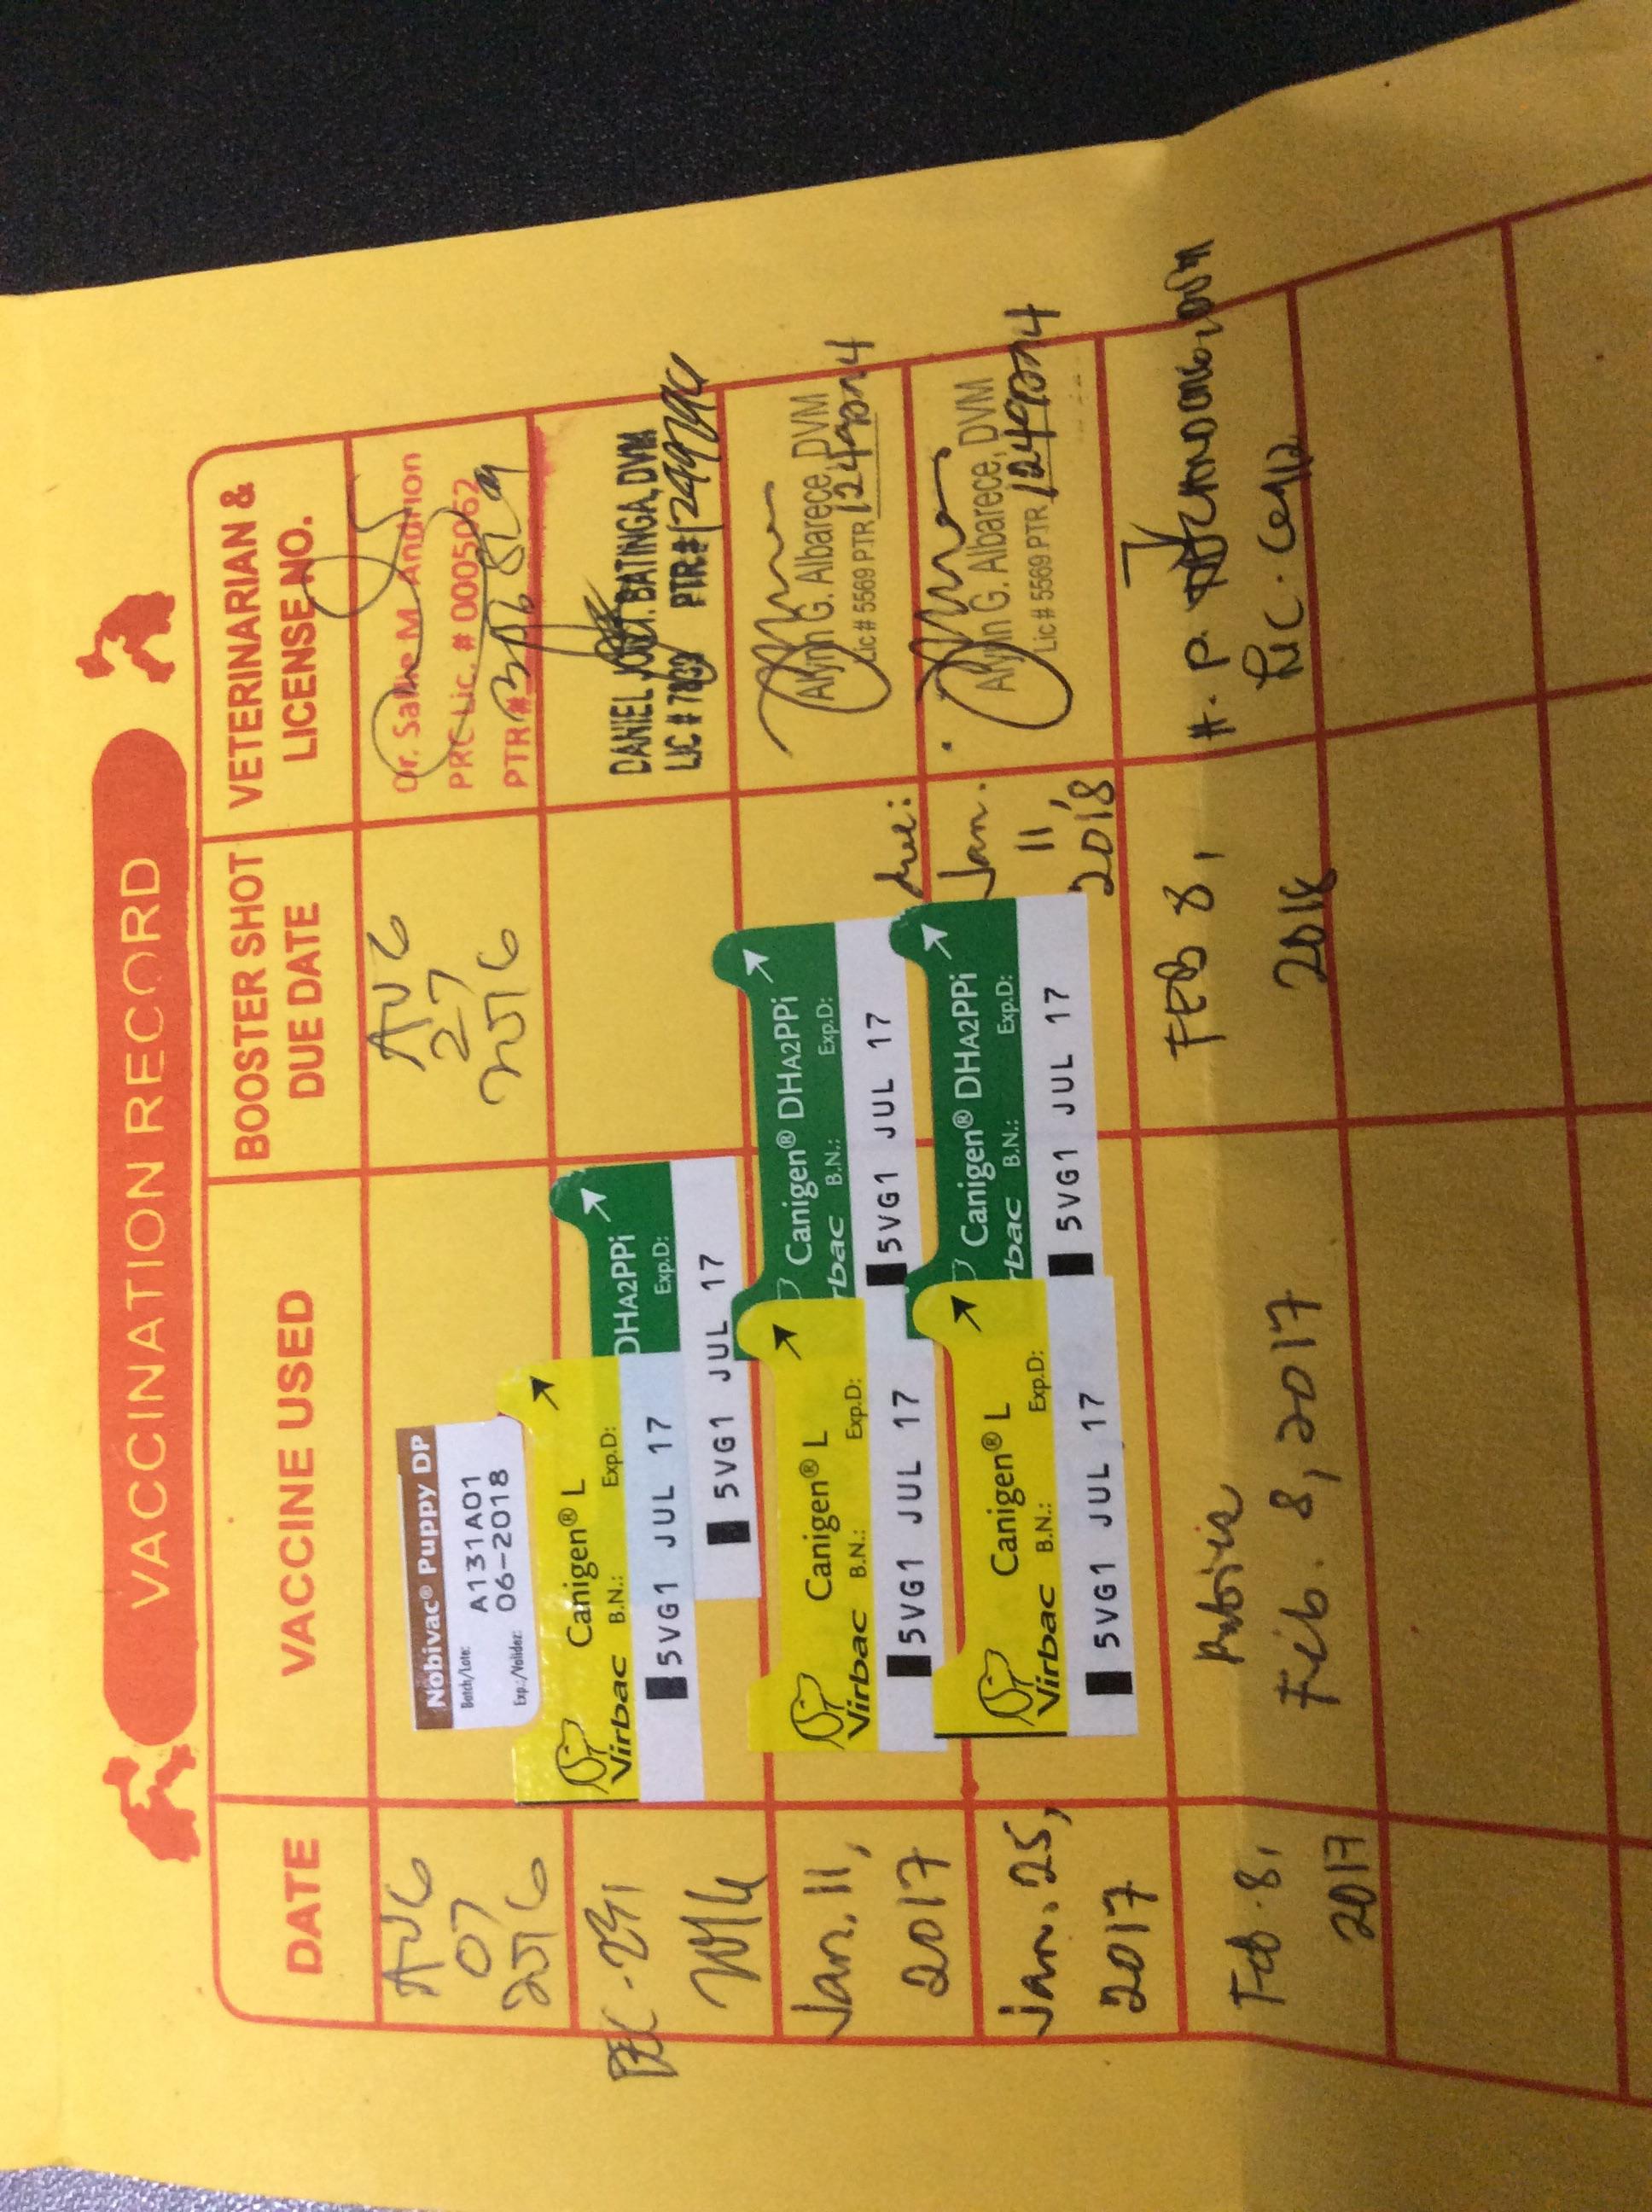 VACCINATION RECORD
DATE
VACCINE USED
BOOSTER SHOT
DUE DATE
VETERINARIAN &
LICENSE NO.
AUG
07
2016
Nobivac® Puppy DP
Batch/Lote: A131A01
Exp./Validez: 06-2018
AUG
27
2016
Dr. Sallie M Andrion
PRC Lic. # 0005062
PTR#
DEC
2016
Canigen® L
Virbac B.N.: Exp.D:
5VG1 JUL 17
DHA2PPi
Exp.D:
5VG1 JUL 17
DANIEL T. BATINGA, DVM
LIC # PTR#
Jan. 11,
2017
Canigen® L
Virbac B.N.: Exp.D:
5VG1 JUL 17
Canigen® DHA2PPi
rbac B.N.: Exp.D:
5VG1 JUL 17
due:
Alynn G. Albarece, DVM
Lic # 5569 PTR
Jan. 25,
2017
Canigen® L
Virbac B.N.: Exp.D:
5VG1 JUL 17
Canigen® DHA2PPi
rbac B.N.: Exp.D:
5VG1 JUL 17
Jan.
11,
2018
Alynn G. Albarece, DVM
Lic # 5569 PTR
Feb. 8,
2017
Feb. 8, 2017
FEB 8,
2018
H. P.
Lic.